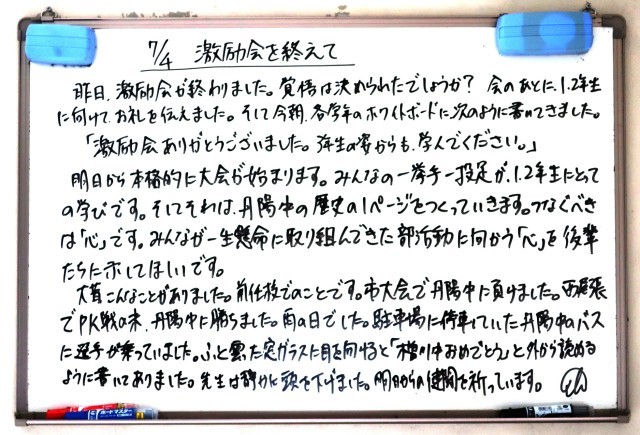 7/4 激励会を終えて
昨日、激励会が終わりました。覚悟は決められたでしょうか? 会のあとに、1.2年生
に向けて、お礼を伝えました。そして今朝、各学年のホワイトボードに次のように書いてきました。
「激励会ありがとうございました。3年生の姿からも、学んでください。」
明日から本格的に大会が始まります。みんなの一挙手一投足が、1.2年生にとって
の学びです。そしてそれは、丹陽中の歴史の1ページをつくっていきます。つなぐべき
は「心」です。みんなが一生懸命に取り組んできた部活動に向かう「心」を後輩
たちに示してほしいです。
大昔こんなことがありました。前任校でのことです。市大会で丹陽中に負けました。西尾張
でPK戦の末、丹陽中に勝ちました。雨の日でした。駐車場に停車していた丹陽中のバス
に選手が乗っていました。ふと曇った窓ガラスに目を向けると「 川中おめでとう」と外から読める
ように書いてありました。先生は静かに頭を下げました。明日からの健闘を祈っています。
ボードマスター